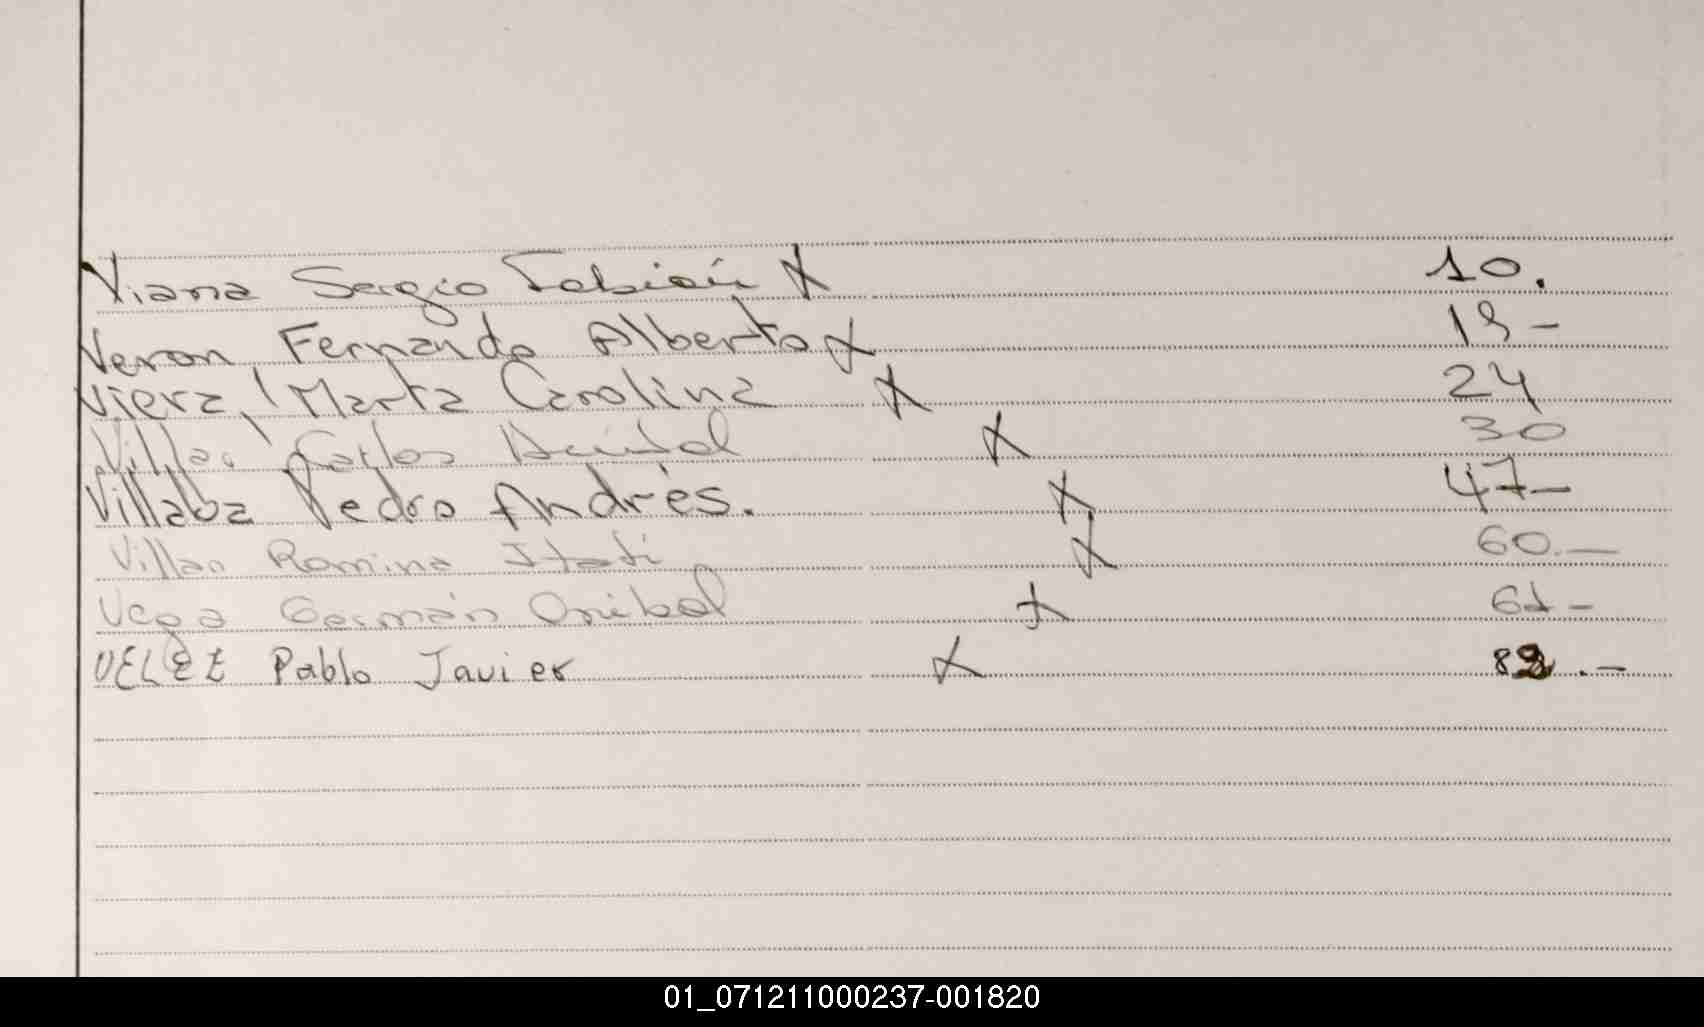 Viana Sergio Fabián X 10.
Veron Fernando Alberto X 19 -
Viera, Marta Carolina X 24
Villar Carlos X 30
Villaba Pedro Andrés. X 47 -
Villan Romina Itatí X 60.-
Vega Germán Anibal X 61 -
VELEZ Pablo Javier X .-
01_071211000237-001820